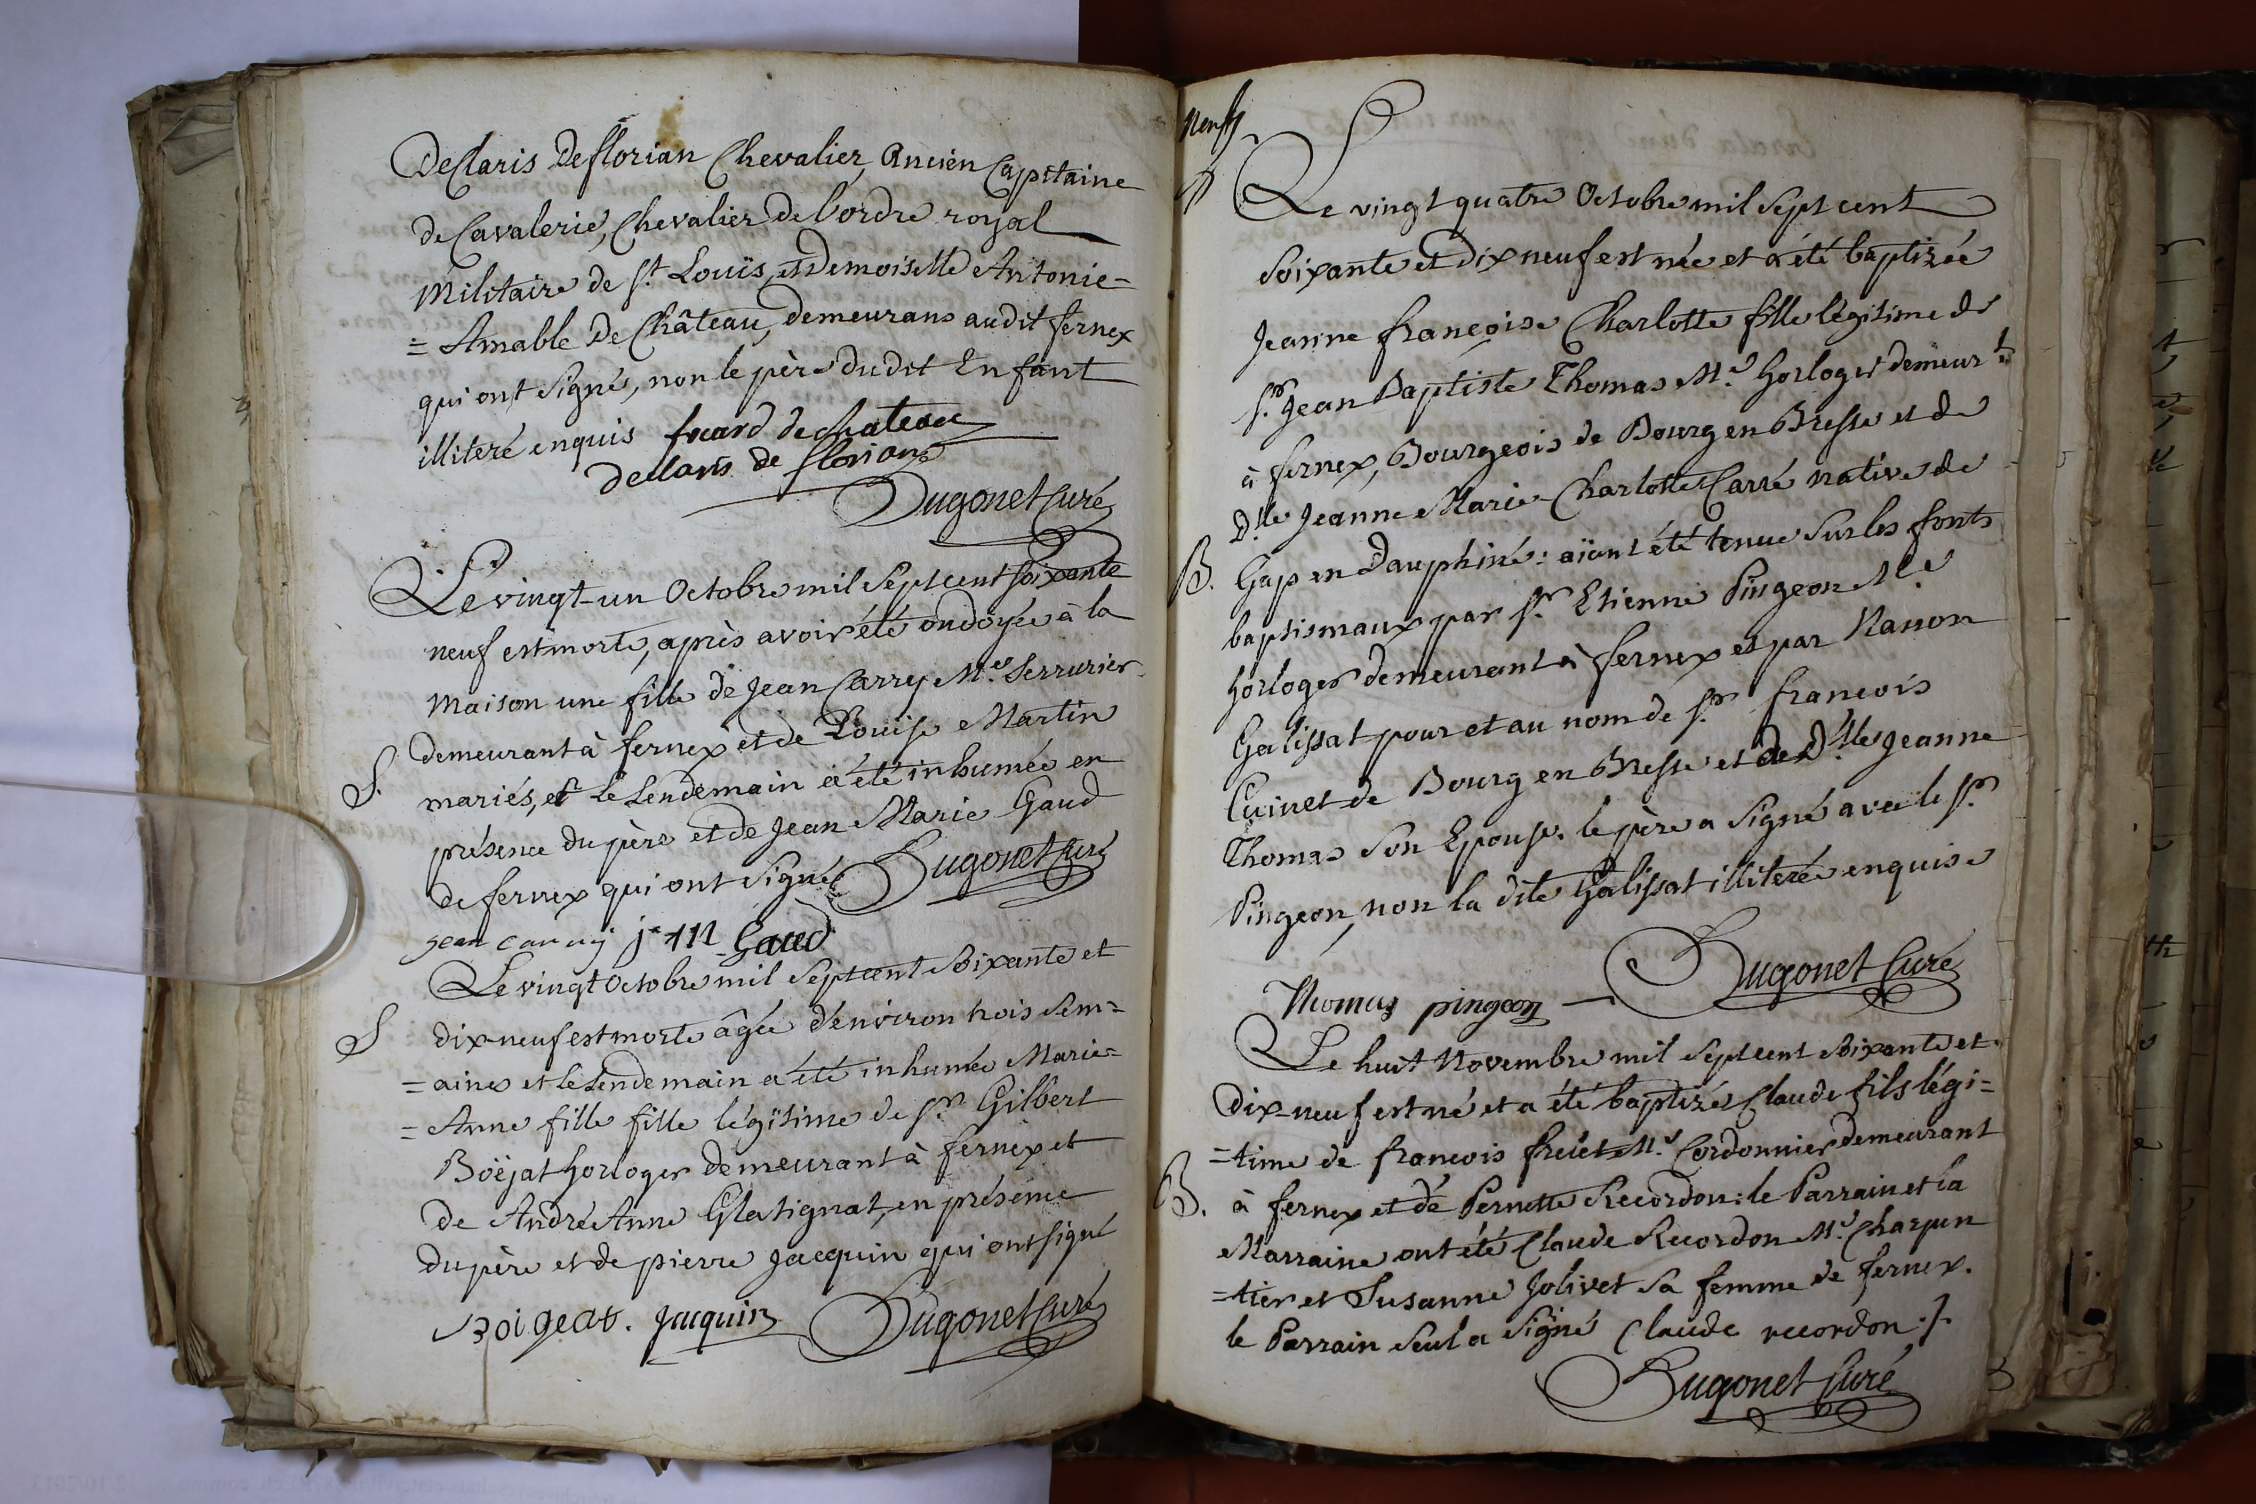 DeClaris Deflorian Chevalier, Ancien Capitaine
de Cavalerie, Chevalier de l'ordre royal
Militaire de St Louïs, et Demoiselle Antonie=
=Amable De Château, demeurans audit fernex
qui ont signé, non le père dudit Enfant
illiteré enquis focard de chateau
declaris de florian
Hugonet Curé
Le vingt-un Octobre mil Sept cent soixante
neuf est morte, après avoir été ondoyée à la
maison une fille de Jean Carry Me Serrurier
demeurant à fernex et de Louise Martin
S.
mariés, et le Lendemain a été inhumée en
présence du père et de Jean Marie Gaud
de fernex qui ont signé Hugonet Curé
jean carry j m Gaud
Le vingt Octobre mil Sept cent Soixante et
S
dix-neuf est morte âgée d'environ trois sem=
=aines et le Lendemain a été inhumée Marie=
=Anne fille fille légitime de Sr Gilbert
Boëjat horloger demeurant à fernex et
de André Anne Glatignat, en présence
du père et de pierre Jacquin qui ont signé
Boigeat. Jacquin Hugonet Curé
Le vingt quatre Octobre mil Sept cent
Soixante et dix neuf est née et a été baptizée
Jeanne françoise Charlotte fille légitime de
Sr Jean Baptiste Thomas Me horloger demeurt
à fernex, Bourgeois de Bourg en Bresse et de
Dlle Jeanne Marie Charlotte Carré native de
B. Gap en Dauphiné: aïant été tenue Sur les fonts
baptismaux par Sr Etienne Pingeon Me
horloger demeurant à fernex et par Nanon
Galissat pour et au nom de Sr francois
Cuinet de Bourg en Bresse et de Dlle Jeanne
Thomas Son Epouse. le père a Signé avec le Sr
Pingeon, non la dite Galissat illiterée enquise
Hugonet Curé
Thomas pingeon
Le huit Novembre mil Sept cent soixante et
dix-neuf est né et a été baptizé Claude fils légi=
=time de francois Me Cordonnier demeurant
B. à fernex et de Pernette Recordon: le Parrain et la
Marraine ont été Claude Recordon Me Charpen
=tier et Susanne Jolivet sa femme de fernex.
le Parrain seul a signé Claude recordon
Hugonet Curé